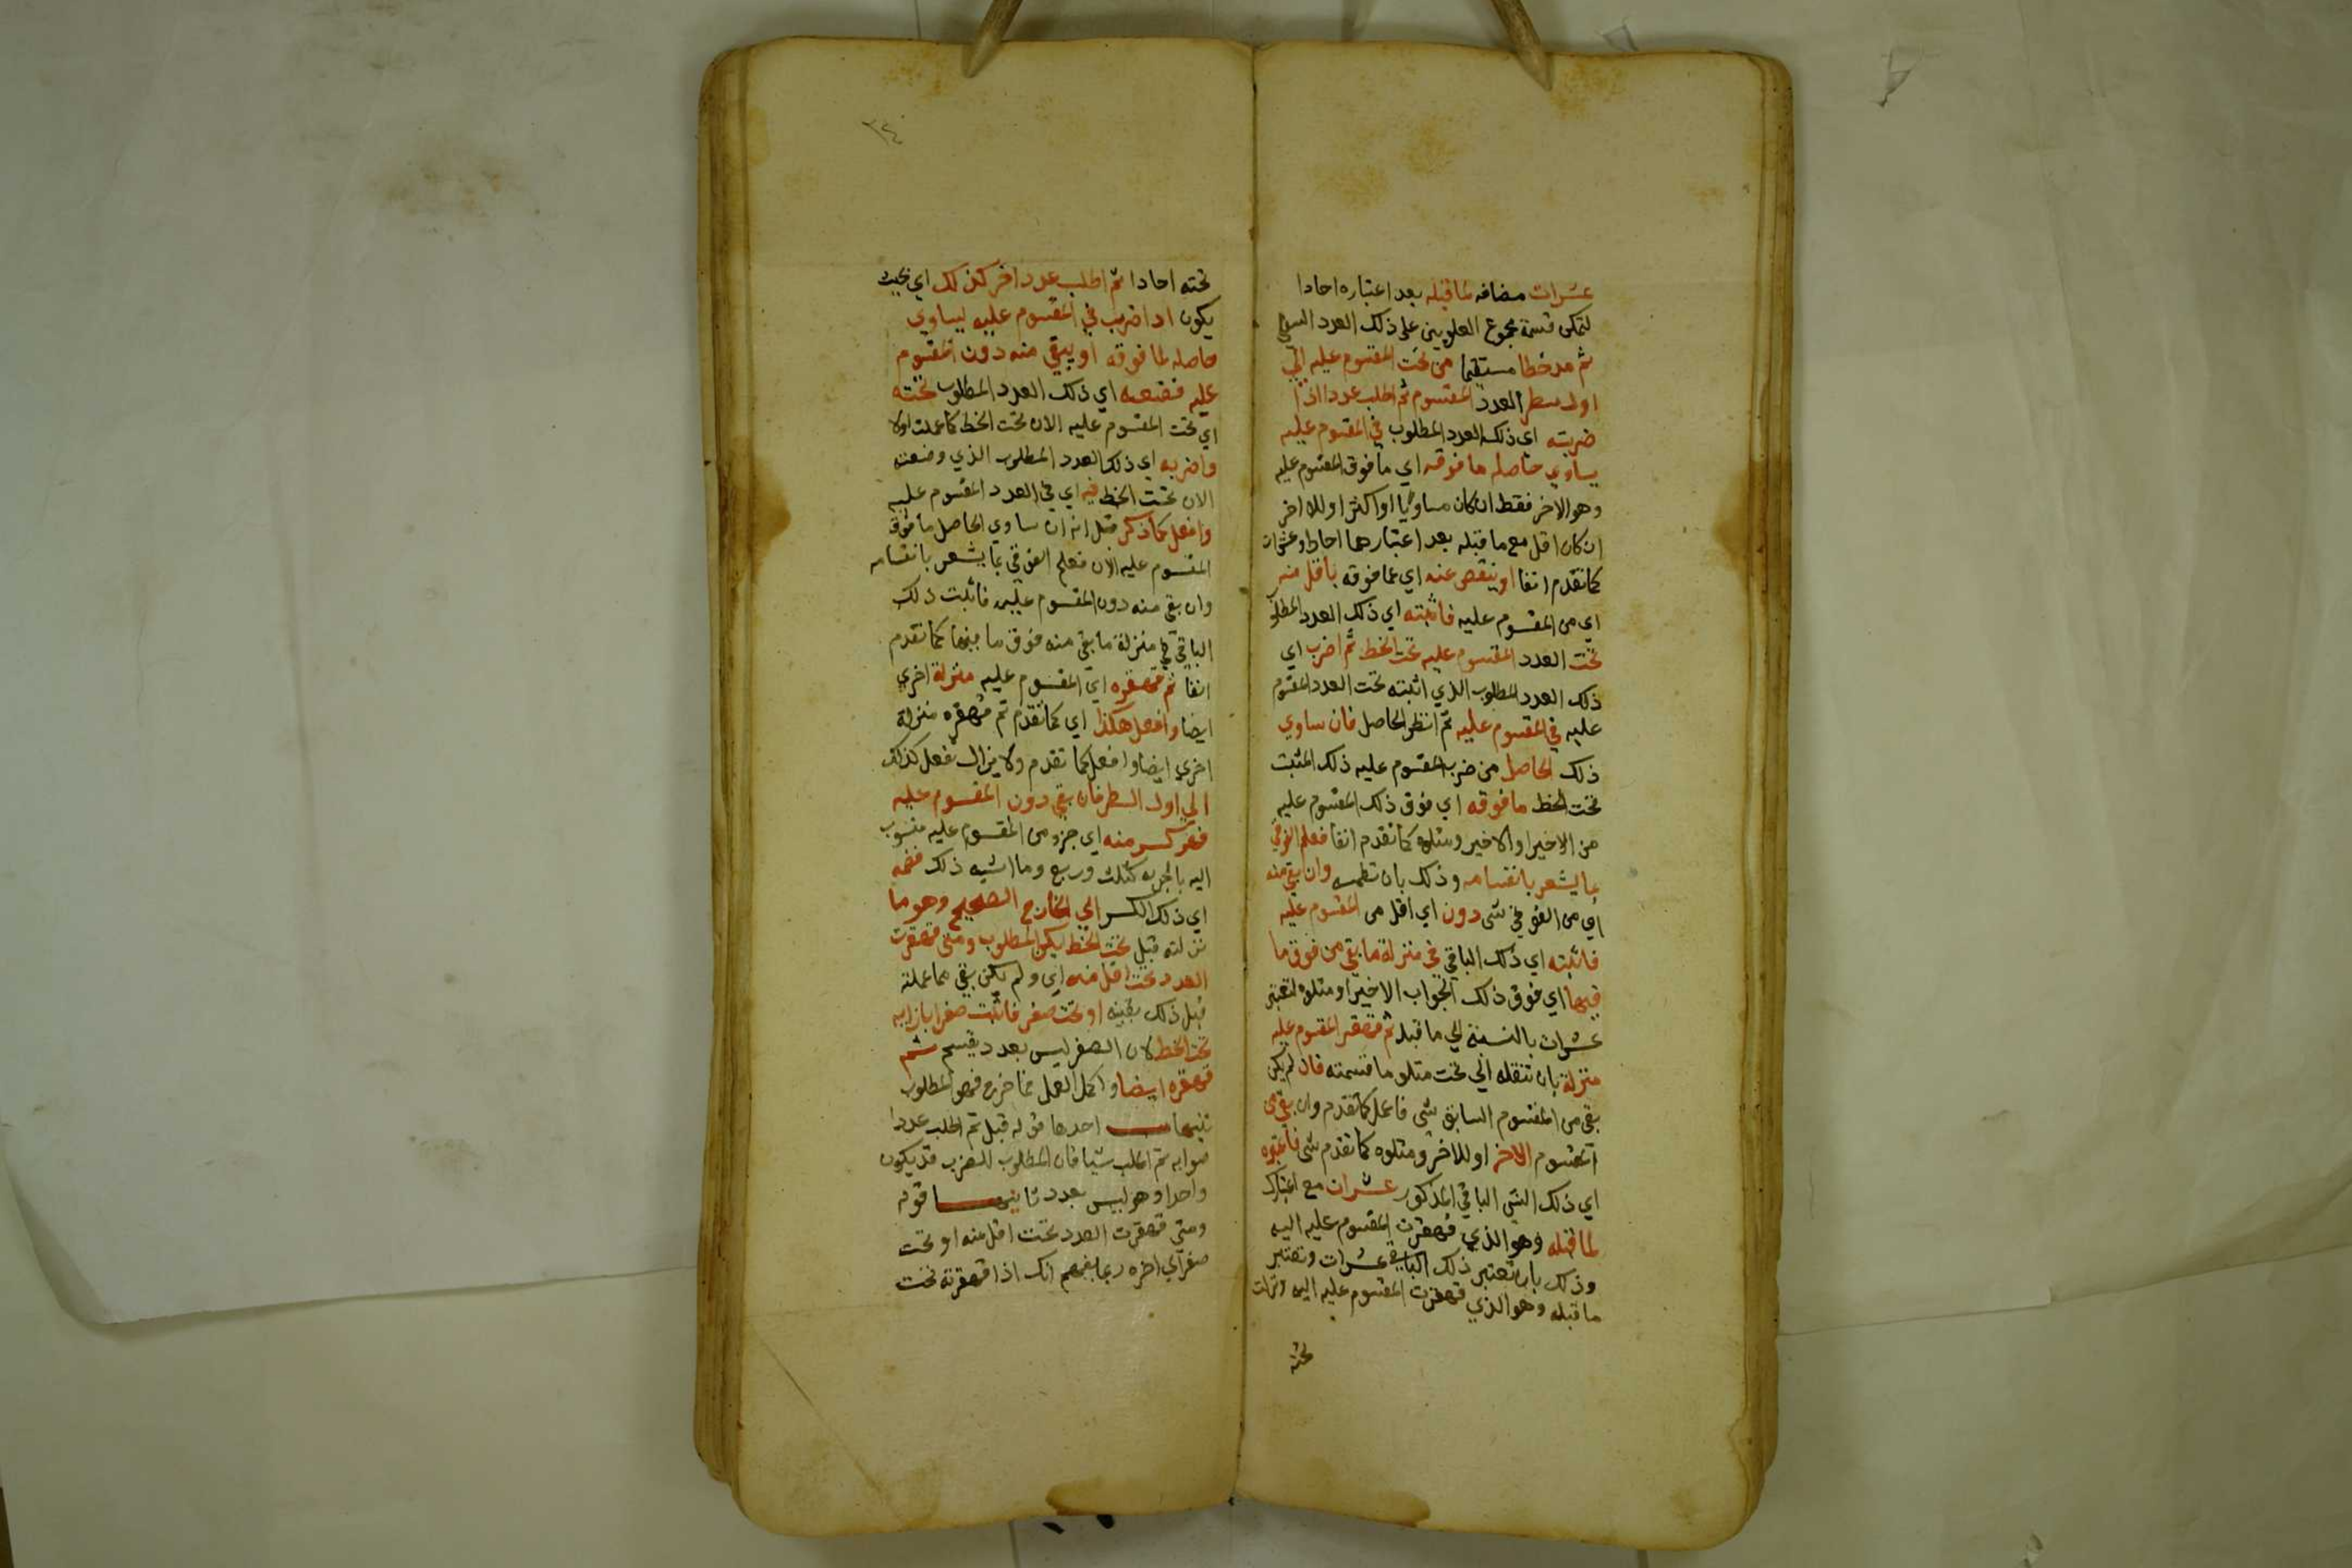 عشرات مضافه لما قبله بعد اعتباره احادا
لتمكن قسمة مجموع العلويين على ذلك العدد السفلي
ثم مد خطا مستقيما من تحت المقسوم عليه الي
اول سطر العدد المقسوم ثم اطلب عددا اذا
ضربته اي ذلك العدد المطلوب في المقسوم عليه
يساوي حاصله ما فوقه اي ما فوق المقسوم عليه
وهو الاخر فقط ان كان مساويا او اكثر او للاخر
ان كان اقل مع ما قبله بعد اعتبارهما احادا وعشرات
كما تقدم انفا او ينقص عنه اي عما فوقه باقل منه
اي من المقسوم عليه فاثبته اي ذلك العدد المطلو
تحت العدد المقسوم عليه تحت الخط ثم اضرب اي
ذلك العدد المطلوب الذي اثبته تحت العدد المقسوم
عليه في المقسوم عليه ثم انظر الحاصل فان ساوي
ذلك الحاصل من ضرب المقسوم عليه ذلك المثبت
تحت الخط ما فوقه اي فوق ذلك المقسوم عليه
من الاخير او الاخير ومتلوه كما تقدم انفا فعلم الفوقي
بما يشعر بانقسامه وذلك بان تطمسه وان بقي منه
اي من الفوقي شي دون اي اقل من المقسوم عليه
فاثبته اي ذلك الباقي في منزلة ما بقي من فوق ما
فيها اي فوق ذلك الجواب الاخير او متلوه لتعتبر
عشرات بالنسبة الي ما قبله ثم قهقر المقسوم عليه
منزلة بان تنقله الي تحت متلو ما قسمته فان لم يكن
بقي من المقسوم السابق شي فاعمل كما تقدم وان بقي من
المقسوم الاخر او للاخر ومتلوه كما تقدم شي فاعتبره
اي ذلك الشي الباقي المذكور عشرات مع اعتبارك
لما قبله وهو الذي قهقرت المقسوم عليه اليه
وذلك بان تعتبر ذلك الباقي عشرات وتعتبر
ما قبله وهو الذي قهقرت المقسوم عليه اليه
تحته
٣٤
تحته احادا ثم اطلب عددا اخر كذلك اي بحيث
يكون اذا ضرب في المقسوم عليه ليساوي
حاصله لما فوقه او يبقي منه دون المقسوم
عليه فضعه اي ذلك العدد المطلوب تحته
اي تحت المقسوم عليه الان تحت الخط كما عملت اولا
واضربه اي ذلك العدد المطلوب الذي وضعته
الان تحت الخط فيه اي في العدد المقسوم عليه
وافعل كما ذكر قبل انه ان ساوي الحاصل ما فوق
المقسوم عليه الان فعلم الفوقي بما يشعر بانقسامه
وان بقي منه دون المقسوم عليه فاثبت ذلك
الباقي في منزلة ما بقي منه فوق ما فيها كما تقدم
انفا ثم قهقره اي المقسوم عليه منزلة اخري
ايضا وافعل هكذا اي كما تقدم ثم قهقره منزلة
اخري ايضا وافعل كما تقدم ولا يزال تفعل كذلك
الي اول السطر فان بقي دون المقسوم عليه
فهو كسر منه اي جزء من المقسوم عليه منسوب
اليه بالجزيه كثلث وربع وما اشبه ذلك فضمه
اي ذلك الكسر الي الخارج الصحيح وهو ما
نزلته قبل تحت الخط يكن المطلوب ومتي قهقرت
العدد تحت اقل منه اي ولم يكن بقي مما عملته
قبل ذلك بقيه او تحت صفر فاثبت صفرا بازايه
تحت الخط لان الصفر ليس بعدد يقسم ثم
قهقره ايضا واكمل العمل فما خرج فهو المطلوب
تنبيهات احدها قوله قبل ثم اطلب عددا
صوابه ثم اطلب شيا فان المطلوب للضرب قد يكون
واحدا وهو ليس بعدد ثانيها قوله
ومتي قهقرت العدد تحت اقل منه او تحت
صفر الي اخره ربما يفهم انك اذا قهقرته تحت